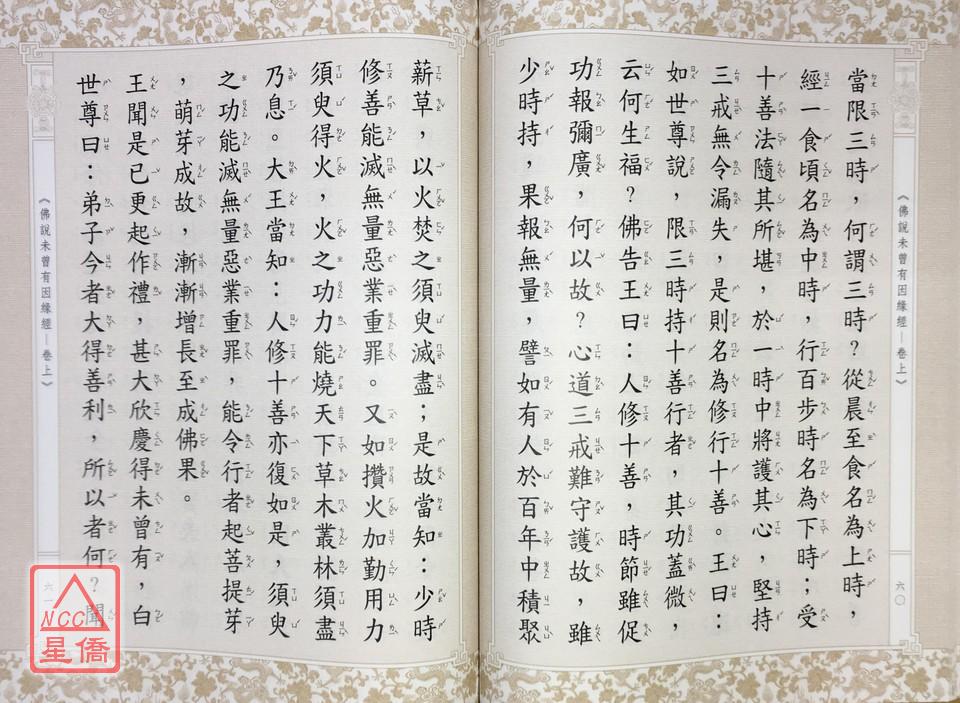 《佛說未曾有因緣經－卷上》
六〇
當限三時，何謂三時？從晨至食名為上時，
經一食頃名為中時，行百步時名為下時；受
十善法隨其所堪，於一時中將護其心，堅持
三戒無令漏失，是則名為修行十善。王曰：
如世尊說，限三時持十善行者，其功蓋微，
云何生福？佛告王曰：人修十善，時節雖促
功報彌廣，何以故？心道三戒難守護故，雖
少時持，果報無量，譬如有人於百年中積聚
薪草，以火焚之須臾滅盡；是故當知：少時
修善能滅無量惡業重罪。又如攢火加勤用力
須臾得火，火之功力能燒天下草木叢林須盡
乃息。大王當知：人修十善亦復如是，須臾
之功能滅無量惡業重罪，能令行者起菩提芽
，萌芽成故，漸漸增長至成佛果。
王聞是已更起作禮，甚大欣慶得未曾有，白
世尊曰：弟子今者大得善利，所以者何？聞
《佛說未曾有因緣經－卷上》
六一
NCC
星僑